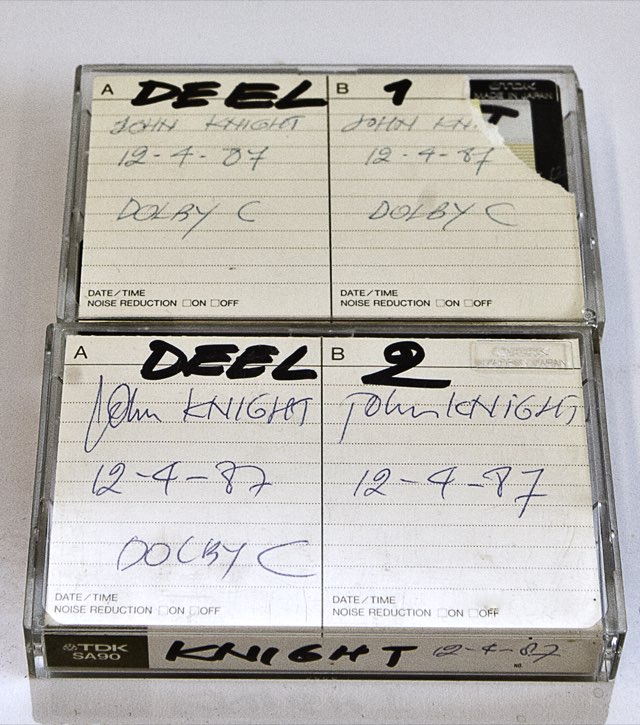 A DEEL B 1
TDK
MADE IN JAPAN
JOHN KNIGHT JOHN KN
12-4-87 12-4-87
DOLBY C DOLBY C
DATE/TIME
NOISE REDUCTION □ON □OFF
DATE/TIME
NOISE REDUCTION □ON □OFF
A DEEL B 2
John KNIGHT John KNIGHT
12-4-87 12-4-87
DOLBY C
DATE/TIME
NOISE REDUCTION □ON □OFF
DATE/TIME
NOISE REDUCTION □ON □OFF
TDK
SA90
KNIGHT 12-4-87